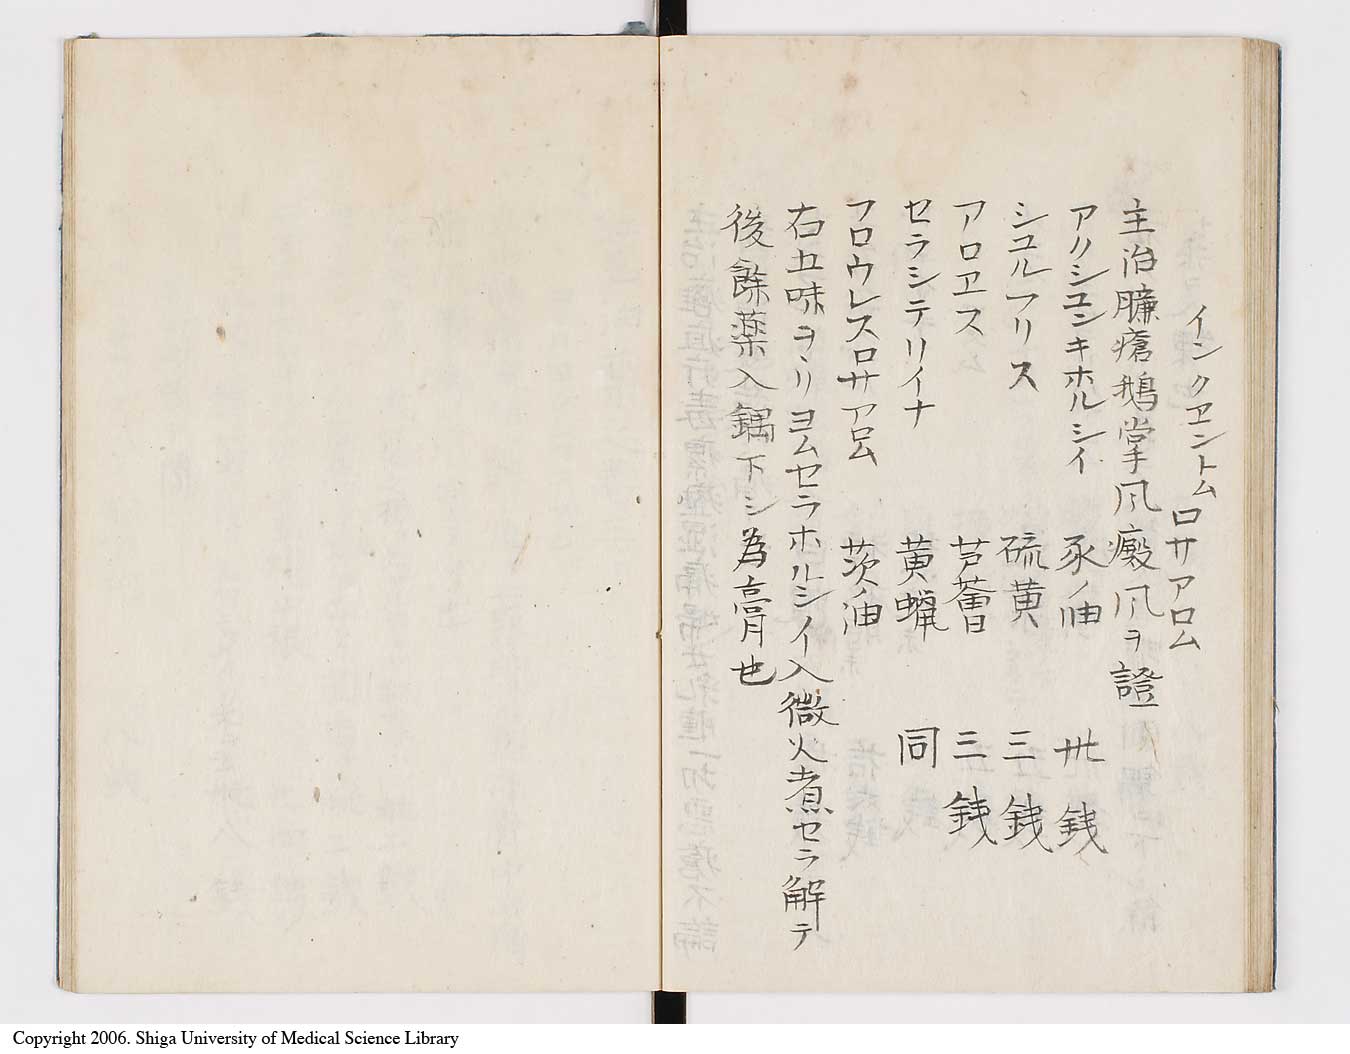 インクヱントムロサアロム
主治臁瘡鵝掌風癜風ヲ證
アノシユンキホルシイ 豕ノ油 卅銭
シユルフリス 硫黄 三銭
アロヱス 芦薈 三銭
セラシテリイナ 黄蝋 同
フロウレスロサアロム 茨ノ油
右五味ヲヽリヨムセラホルシイ入微火煮セラ解テ
後餘薬入鍋下シ為膏也
Copyright 2006. Shiga University of Medical Science Library